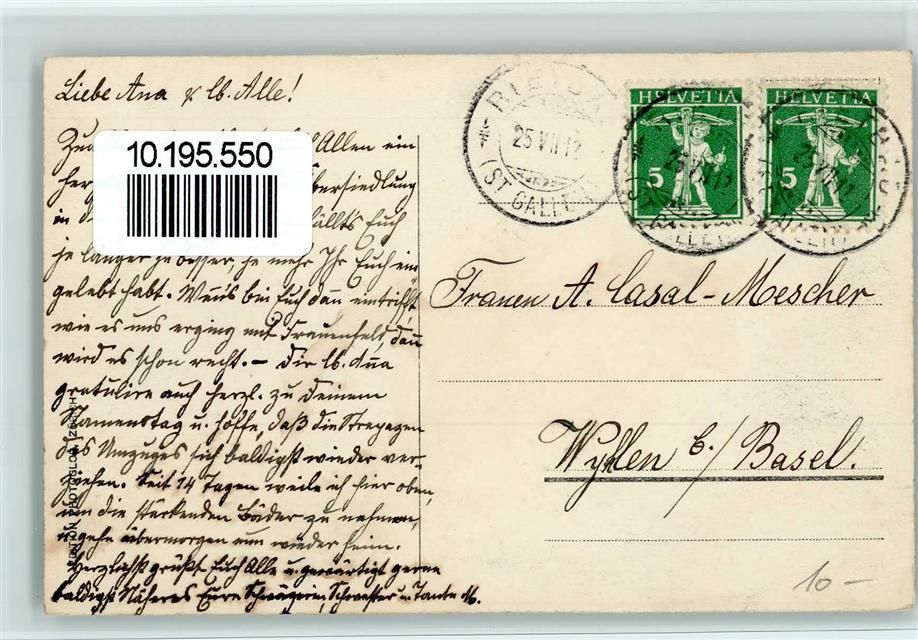 Liebe Ana & lb. Alle!
Allen ein
Übersiedlung
in
gefällts Euch
je länger je besser, je mehr Ihr Euch ein
gelebt habt. Wenns bei Euch dann eintrifft
wie es uns erging mit Frauenfeld, dann
wird es schon recht. – Dir lb. Anna
gratulire auch herzl. zu Deinem
Namenstag u. hoffe, daß die Strapazen
des Umzuges sich baldigst wieder ver-
ziehen. Seit 14 Tagen weile ich hier oben,
um die stärkenden Bäder zu nehmen,
u. gehe übermorgen nun wieder heim.
Herzlichst grüßt Euch Alle u. gewärtigt gerne
baldigst Näheres Eure Schwägerin, Schwester u. Tante
10.195.550
25 VII 12
(ST. GALLEN)
HELVETIA
5
HELVETIA
5
Frauen A. Casal-Mescher
Wyhlen b./Basel.
10–